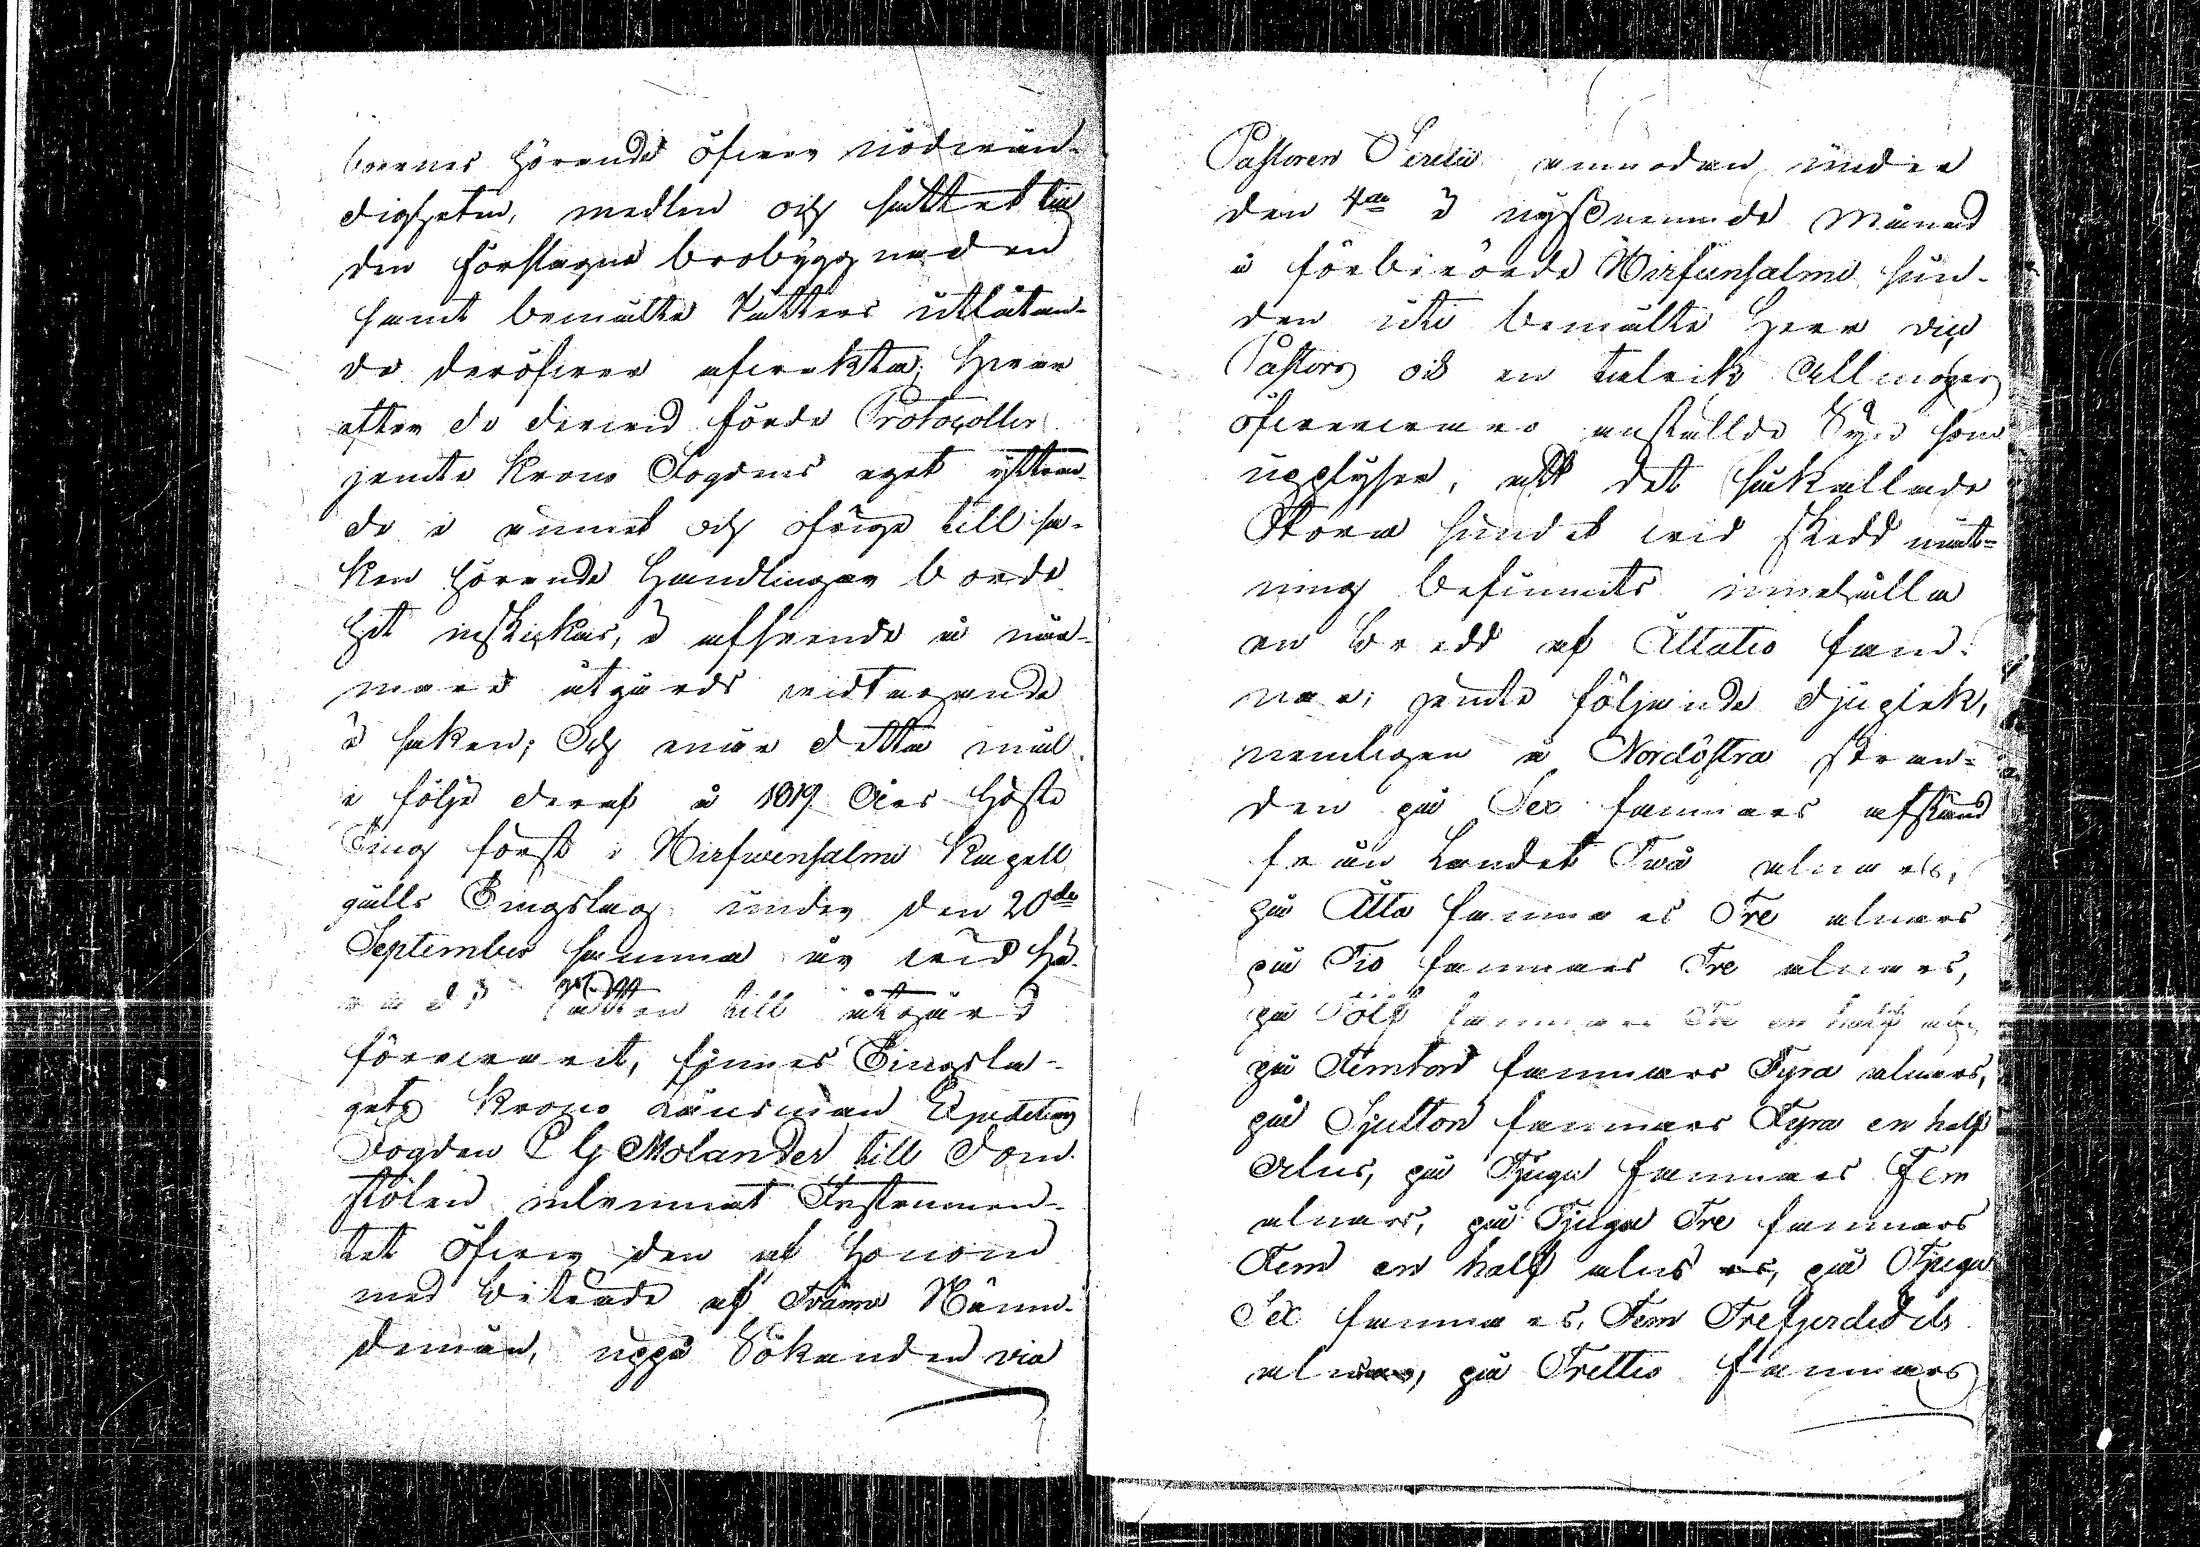 boernes hörande öfwer nödwän-
digheten, medlen och sättet till
den förslagne brobyggnaden
samt bemälte Rätters utlåtan-
de deröfwer afwakta; hwar
efter de derwid förde Protocoller
jemte Krono Fogdens eget yttran-
de i ämnet och öfrige till sa-
ken hörande Handlingar borde
hit inskickas, i afseende å när-
mare åtgärds widtagande
i saken; Och enär detta mål
i följe deraf å 1819 Års Höste
Ting först i Hirfwensalmi Kapell
gälls Tingslag under den 20de
September samma år wid Hä-
rads Rätten till åtgärd
förewarit, finnes Tingsla-
gets Krono Länsman Expeditions
Fogden C G Molander till Dom-
stolen inlemnat Instrumen-
tet öfwer den af honom
med biträde af Twänne Nämn-
demän, uppå Sökanden vice
Pastoren anmodan under
den 4de i nyssnemnde Månad
i förberörde Hirfwensalmi sun-
den uti bemälte Herr vice
Pastors och en talrik Allmoges
öfwerwaro anstälde Syn som
upplyser, att det såkallade
Stora sundet wid skedd mät-
ning befunnits innehålla
en bredd af Åttatio fam-
nar; jemte följande djuplek,
nemligen å Nordöstra stran-
den på Sex famnars afstånd
från Landet Två alnars,
på Åtta famnars Tre alnars
på Tio famnars Tre alnars,
på Tolf famnars Tre en half aln,
på Femton famnars Fyra alnars,
på Sjutton famnars Fyra en half
Alns, på Tjugu famnars Fem
alnars, på Tjugu Tre famnars
Fem en half alns, på Tjugu
Sex famnars, Fem Trefjerdedels
alns, på Trettio famnars